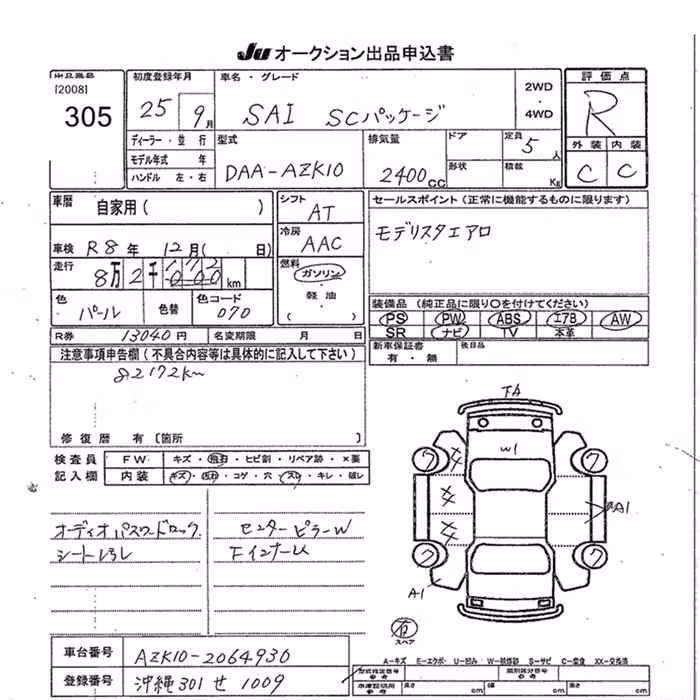 Ju オークション出品申込書
出品番号 初度登録年月 車名・グレード 評価点
[2008] 305 25 9月 SAI SCパッケージ 2WD ・ 4WD R
ディーラー・並行 型式 排気量 ドア 定員 5人 外装 内装
モデル年式 年 DAA-AZK10 2400cc 形状 積載 Kg C C
ハンドル 左・右
車歴 自家用( ) シフト AT セールスポイント(正常に機能するものに限ります)
車検 R8年 12月( 日) 冷房 AAC モデリスタエアロ
走行 8万2千 km 燃料 ガソリン ・ 軽油
色 パール 色替 色コード 070 装備品(純正品に限り○を付けてください)
PS PW ABS エアB AW
SR ナビ TV 本革
R券 13040円 名変期限 月 日 新車保証書 有・無 後日品
注意事項申告欄(不具合内容等は具体的に記入して下さい)
82172km
修復歴 有〔箇所 〕
検査員 FW キズ・飛石・ヒビ割・リペア跡・×要
記入欄 内装 キズ・汚れ・コゲ・穴・スレ・キレ・破レ
オーディオパスワードロック センターピラーW
FA
W1
AA1
A1
有
スペア
車台番号 AZK10-2064930
登録番号 沖縄301せ1009
A-キズ E-エクボ U-凹み W-補修跡 S-サビ C-腐食 XX-交換済
長さ cm 幅 cm 高さ cm